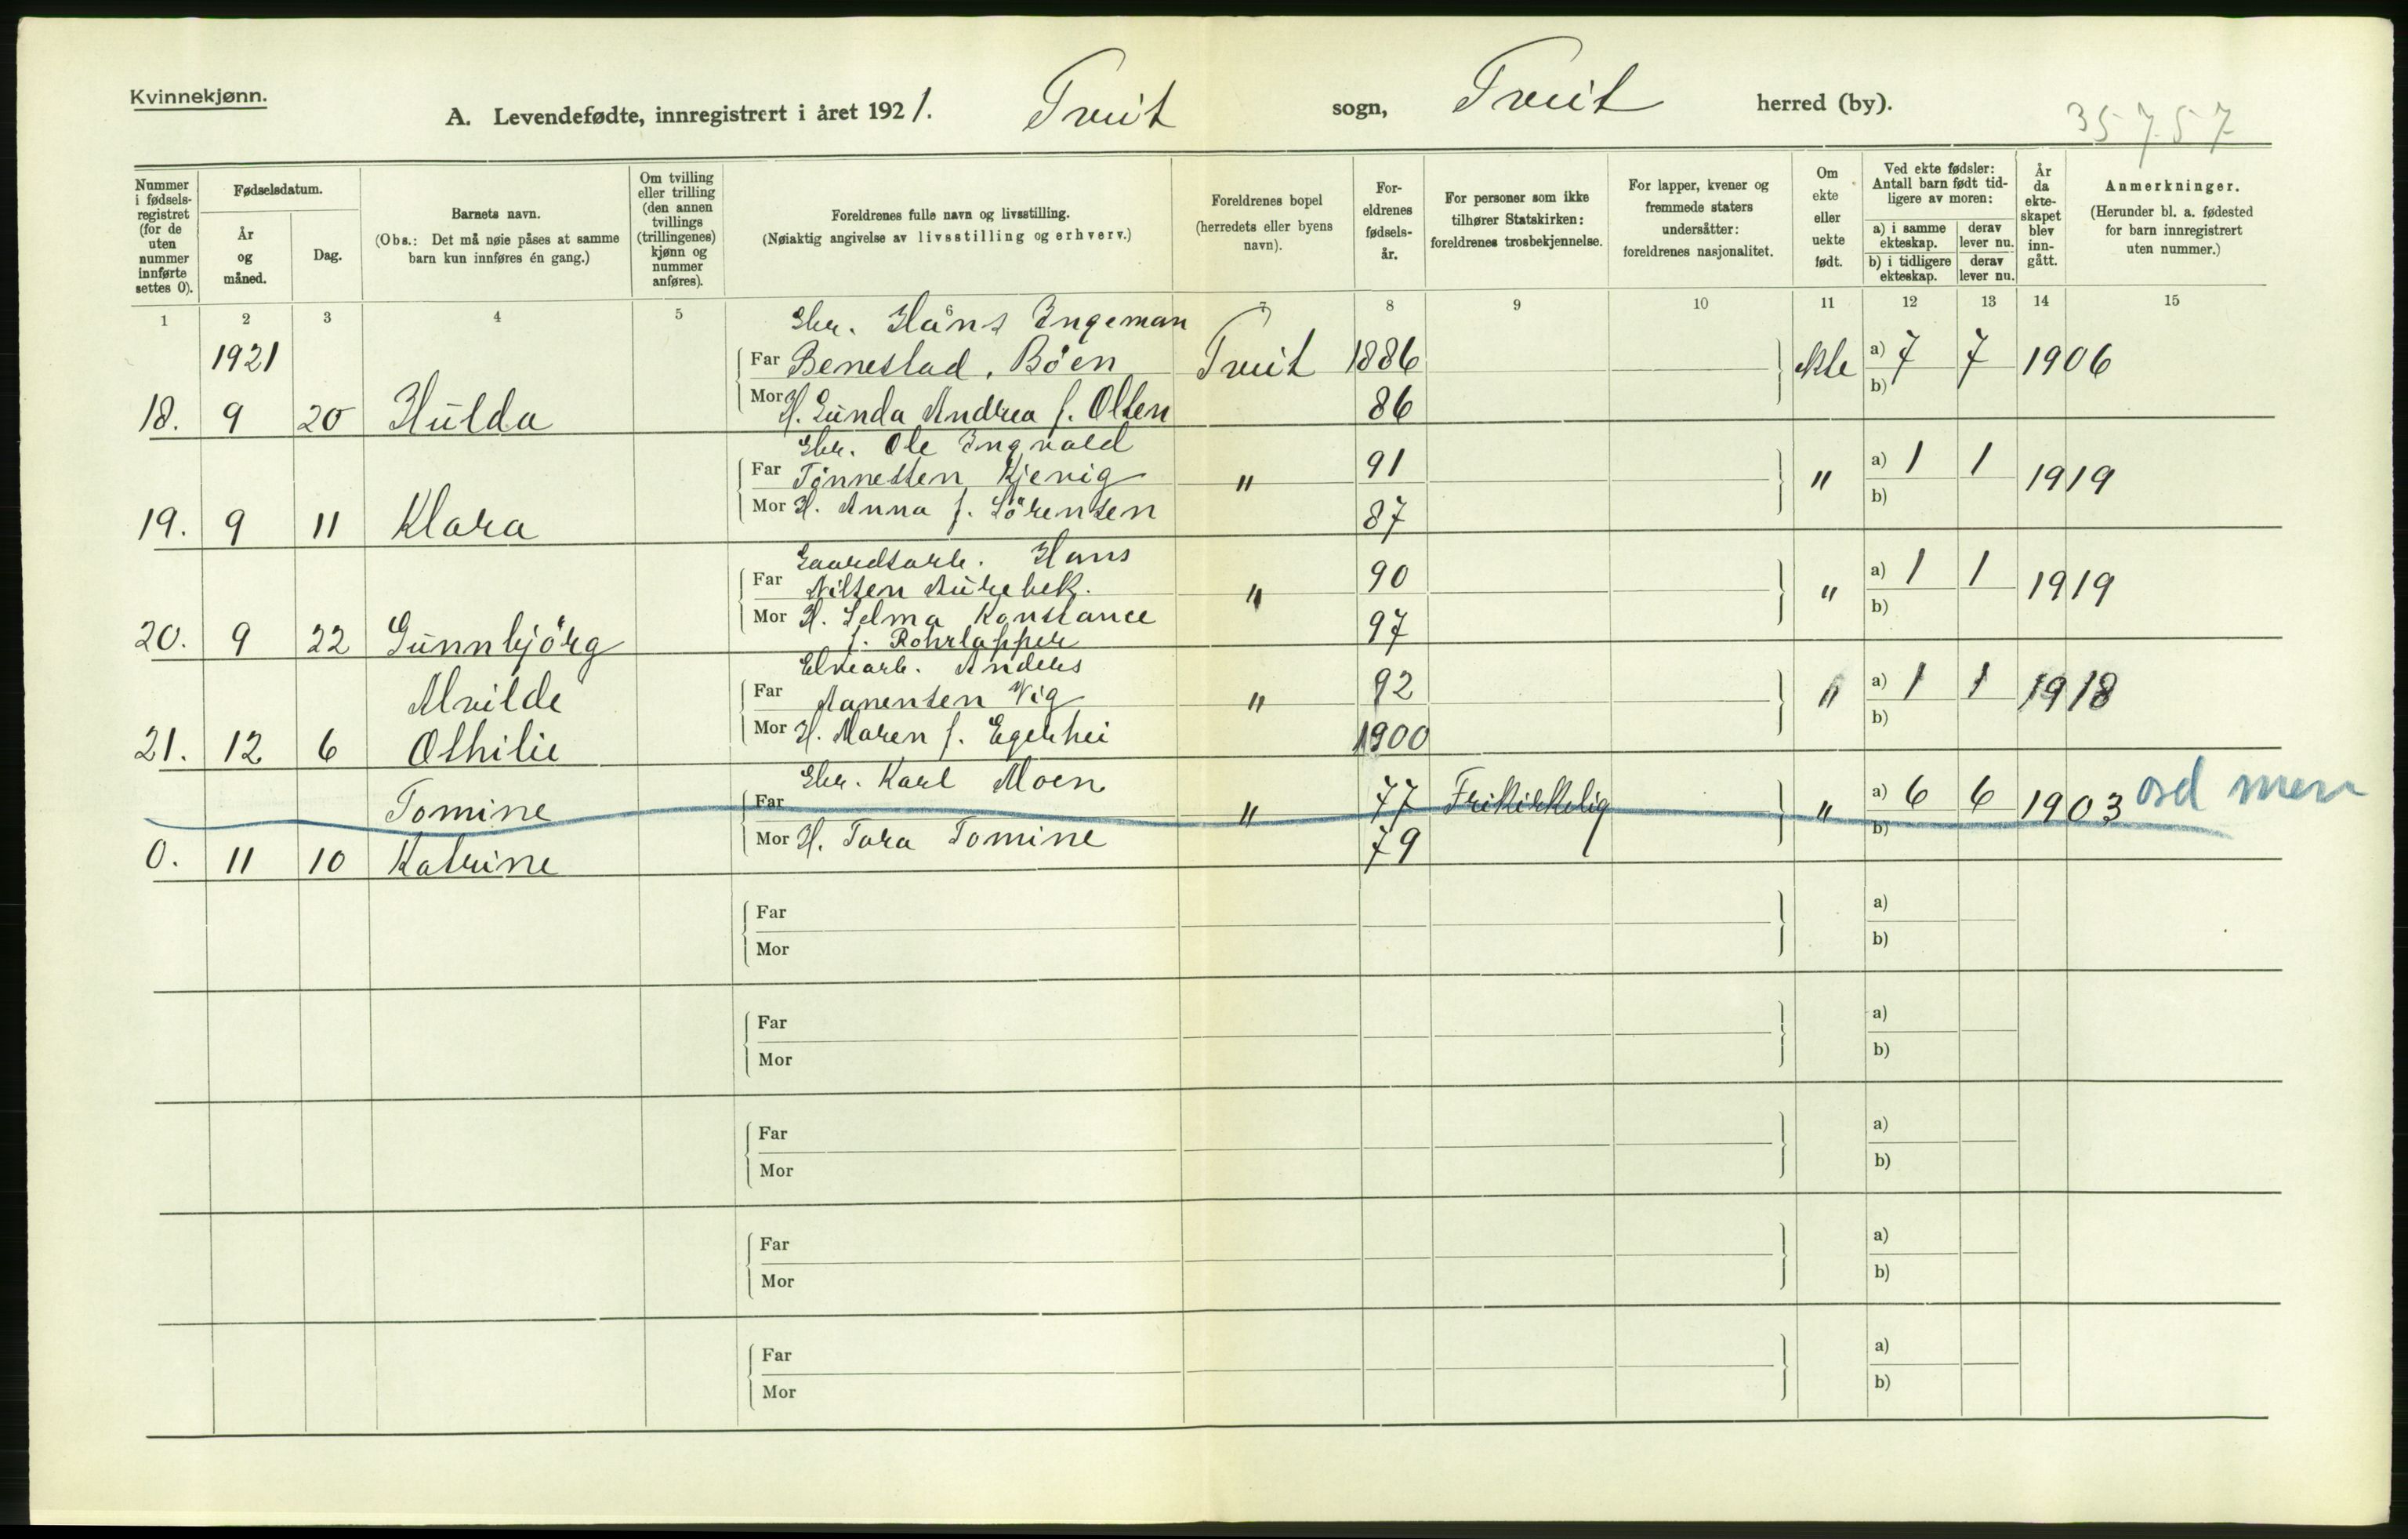 Kvinnekjønn.
A. Levendefødte, innregistrert i året 1921. Tveit sogn, Tveit herred (by).
35757
Nummer i fødsels-registret (for de uten nummer innførte settes 0).
Fødselsdatum.
År og måned.
Dag.
Barnets navn.
(Obs.: Det må nøie påses at samme barn kun innføres én gang.)
Om tvilling eller trilling (den annen tvillings (trillingenes) kjønn og nummer anføres).
Foreldrenes fulle navn og livsstilling.
(Nøiaktig angivelse av livsstilling og erhverv.)
Foreldrenes bopel
(herredets eller byens navn).
For-eldrenes fødsels-år.
For personer som ikke tilhører Statskirken: foreldrenes trosbekjennelse.
For lapper, kvener og fremmede staters undersåtter: foreldrenes nasjonalitet.
Om ekte eller uekte født.
Ved ekte fødsler: Antall barn født tid-ligere av moren:
a) i samme ekteskap.
derav lever nu.
b) i tidligere ekteskap.
derav lever nu.
År da ekte-skapet blev inn-gått.
Anmerkninger.
(Herunder bl. a. fødested for barn innregistrert uten nummer.)
1 2 3 4 5 7 8 9 10 11 12 13 14 15
Gbr. Hans Ingeman
1921 Far Benestad, Böen Tveit 1886 ekte a) 7 7 1906
18. 9 20 Hulda Mor H. Gunda Andrea f. Olsen 86 b)
Gbr. Ole Ingvald
Far Tönnessen Kjevig " 91 " a) 1 1 1919
19. 9 11 Klara Mor H. Anna f. Sörensen 87 b)
Gaardsarb. Hans
Far Nilsen Aurebek. " 90 " a) 1 1 1919
20. 9 22 Gunnbjörg Mor H. Selma Konstance 97 b)
f. Rohrlapper
Elvearb. Anders
Alvilde Far Aanensen Vig " 92 " a) 1 1 1918
21. 12 6 Othilie Mor H. Maren f. Egeshei 1900 b)
Gbr. Karl Moen
Tomine Far " 77 Frikirkelig " a) 6 6 1903
0. 11 10 Katrine Mor H. Tora Tomine 79 b)
Far a)
Mor b)
Far a)
Mor b)
Far a)
Mor b)
Far a)
Mor b)
Far a)
Mor b)